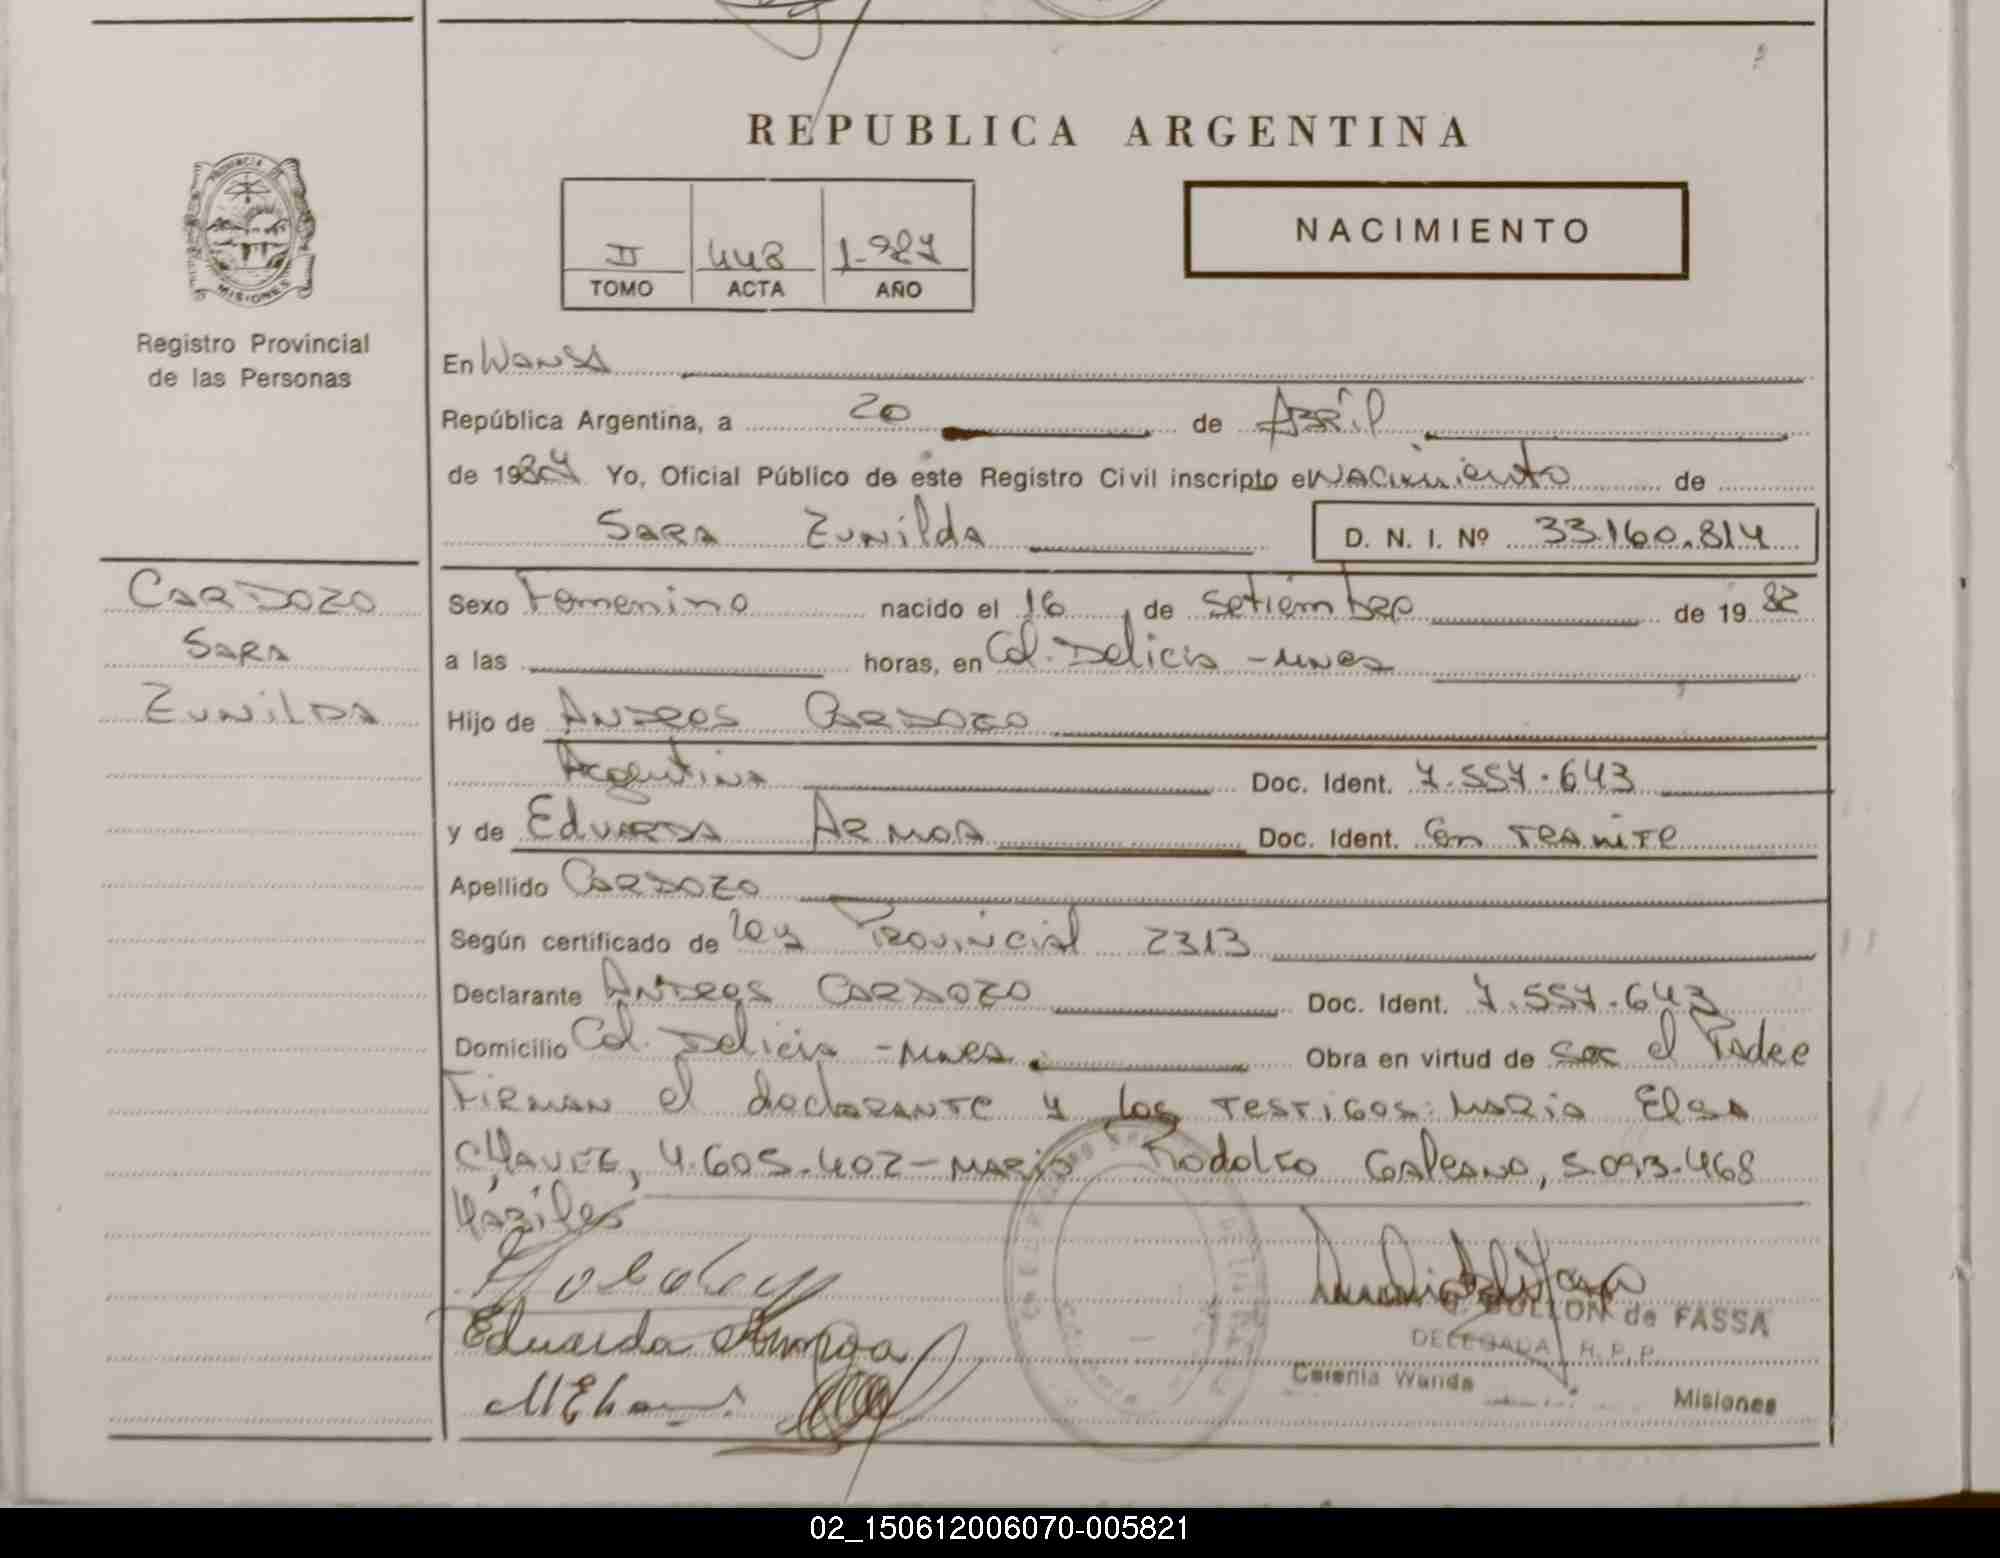 REPUBLICA ARGENTINA
PROVINCIA DE
MISIONES
Registro Provincial
de las Personas
II 448 1.987
TOMO ACTA AÑO
NACIMIENTO
En Wanda
República Argentina, a 20 de Abril
de 1987 Yo, Oficial Público de este Registro Civil inscripto el Nacimiento de
Sara Zunilda D. N. I. Nº 33.160.814
CARDOZO
SARA
ZUNILDA
Sexo Femenino nacido el 16 de Setiembre de 19 82
a las horas, en Col. Delicia - Mnes
Hijo de Andres Cardozo
Argentina Doc. Ident. 7.557.643
y de Eduarda Armoa Doc. Ident. en tramite
Apellido Cardozo
Según certificado de ley Provincial 2313
Declarante Andres Cardozo Doc. Ident. 7.557.643
Domicilio Col. Delicia - Mnes Obra en virtud de ser el Padre
Firman el declarante y los testigos: Maria Elsa
Chavez, 4.605.402 - Mario Rodolfo Galeano, 5.093.468
Hábiles
Eduarda Armoa
BULLON de FASSA
DELEGADA R. P. P.
Colonia Wanda Misiones
02_150612006070-005821